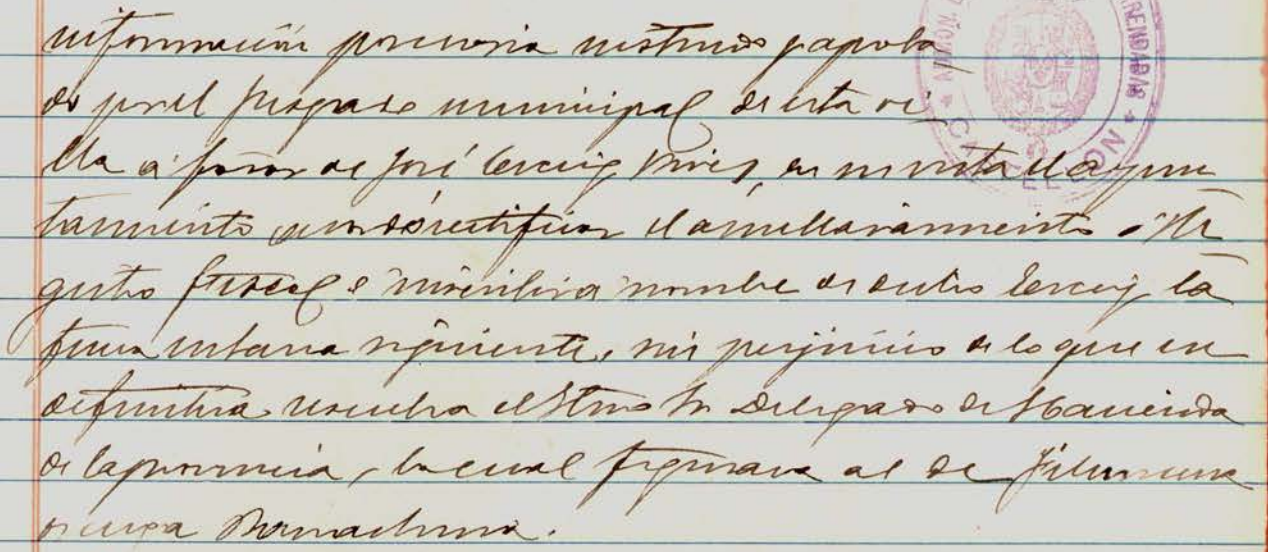 información posesoria instruida y aproba
da por el Juzgado municipal de esta vi
lla a favor de José Cercuig Vives, en su vista el Ayun
tamiento acordó rectificar el amillaramiento o Re
gistro fiscal e inscribir a nombre de dicho Cercuig la
finca urbana siguiente, sin perjuicio de lo que en
definitiva resuelva el Iltmo Sr Delegado de Hacienda
de la provincia, la cual figurava al de Filomena
Bonachona.
ADMON. RENDADAS
CASTELLON